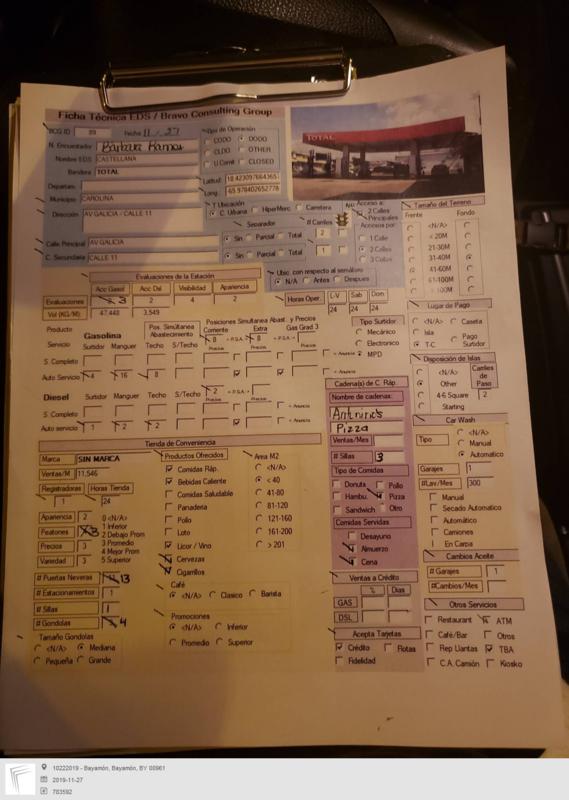 Ficha Técnica EDS / Bravo Consulting Group
BCG ID 99 Fecha 11/27
N. Encuestador Barbara Ramos
Nombre EDS CASTELLANA
Bandera TOTAL
Departam.
Municipio CAROLINA
Dirección AV GALICIA / CALLE 11
Calle Principal AV GALICIA
C. Secundaria CALLE 11
Tipo de Operación
CODO DODO
CLDO OTHER
U.Comit CLOSED
Latitud: 18.423097664365
Long.: -65.978402652778
T Ubicación
C. Urbana HiperMerc Carretera
Separador # Carriles
Sin Parcial Total 2
Sin Parcial Total 1
TOTAL
Acceso a:
2 Calles
Principales
Accesos por:
1 Calle
2 Calles
3 Calles
Tamaño del Terreno
Frente Fondo
<N/A>
< 20M
21-30M
31-40M
41-60M
61-100M
> 100M
Evaluaciones de la Estación
Acc Gasol Acc Dsl Visibilidad Apariencia
Evaluaciones 3 2 4 2
Vol (KG/M) 47,448 3,549
Ubic. con respecto al semáforo
N/A Antes Despues
Horas Oper. L-V Sab Dom
24 24 24
Lugar de Pago
<N/A> Caseta
Isla
T-C Pago Surtidor
Producto
Gasolina
Surtidor Manguer
Pos. Simultánea Abastecimiento
Techo S/Techo
Posiciones Simultánea Abast. y Precios
Corriente Extra Gas Grad 3
8 8
Precios Precios Precios
S. Completo
Auto Servicio 4 16 8
Tipo Surtidor
Mecánico
Electronico
MPD
Disposición de Islas
<N/A>
Other
4-6 Square
Starting
Carriles de Paso
2
Diesel Surtidor Manguer Techo S/Techo 2
Precios
S. Completo
Auto servicio 1 2 2
Cadena(s) de C. Ráp.
Nombre de cadenas:
Antonino's
Pizza
Ventas/Mes
# Sillas 3
Tipo de Comidas
Donuts Pollo
Hambu. Pizza
Sandwich Otro
Comidas Servidas
Desayuno
Almuerzo
Cena
Car Wash
Tipo <N/A>
Manual
Automatico
Garajes 1
#Lav/Mes 300
Manual
Secado Automatico
Automático
Camiones
En Carpa
Cambios Aceite
# Garajes 1
#Cambios/Mes
Tienda de Conveniencia
Marca SIN MARCA
Ventas/M 11,546
Registradoras Horas Tienda
1 24
Apariencia 2
Peatones 3
Precios 3
Variedad 3
0 <N/A>
1 Inferior
2 Debajo Prom
3 Promedio
4 Mejor Prom
5 Superior
# Puertas Neveras 13
# Estacionamientos 1
# Sillas 1
# Gondolas 4
Tamaño Gondolas
<N/A> Mediana
Pequeña Grande
Productos Ofrecidos
Comidas Ráp.
Bebidas Caliente
Comidas Saludable
Panaderia
Pollo
Loto
Licor / Vino
Cervezas
Cigarrillos
Area M2
<N/A>
< 40
41-80
81-120
121-160
161-200
> 201
Café
<N/A> Clasico Barista
Promociones
<N/A> Inferior
Promedio Superior
Ventas a Crédito
% Dias
GAS
DSL
Acepta Tarjetas
Crédito Flotas
Fidelidad
Otros Servicios
Restaurant ATM
Café/Bar Otros
Rep Llantas TBA
C.A. Camión Kiosko
10222019 - Bayamón, Bayamón, BY 00961
2019-11-27
783592